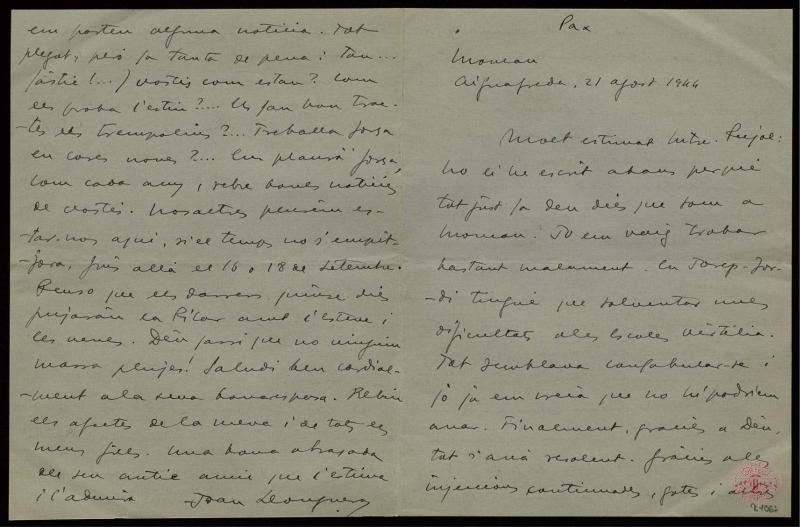 Pax
Montcau
Aiguafreda, 21 agost 1944
Molt estimat Mtre. Pujol:
no li he escrit abans perquè
tot just fa deu dies que som a
Montcau. Jo em vaig trobar
bastant malament. En Josep-Jor-
-di tingué que solventar unes
dificultats a les Escoles Virtèlia.
Tot semblava confabular-se i
jo ja em creia que no hi podríem
anar. Finalment, gràcies a Déu,
tot s'anà resolent. Gràcies a les
injeccions continuades, gotes i altres
em porten alguna notícia. Tot
plegat, però fa tanta de pena i tan...
fàstic!...) Vostès com estan? Com
els proba l'estiu?... Us fan bon trac-
-te els trempolins?... Treballa força
en coses noves?... Em plaurà força,
com cada any, rebre bones notícies
de vostès. Nosaltres pensem es-
-tar-nos aquí, si el temps no s'empit-
-jora, fins allà el 16 o 18 de setembre.
Penso que els darrers quinze dies
pujaran la Pilar amb l'Esteve i
les nenes. Déu fassi que no vinguin
massa plujes! Saludi ben cordial-
-ment a la seva bona esposa. Rebin
els afectes de la meva i de tots els
meus fills. Una bona abraçada
del seu antic amic que l'estima
i l'admira Joan Llongueras
21067